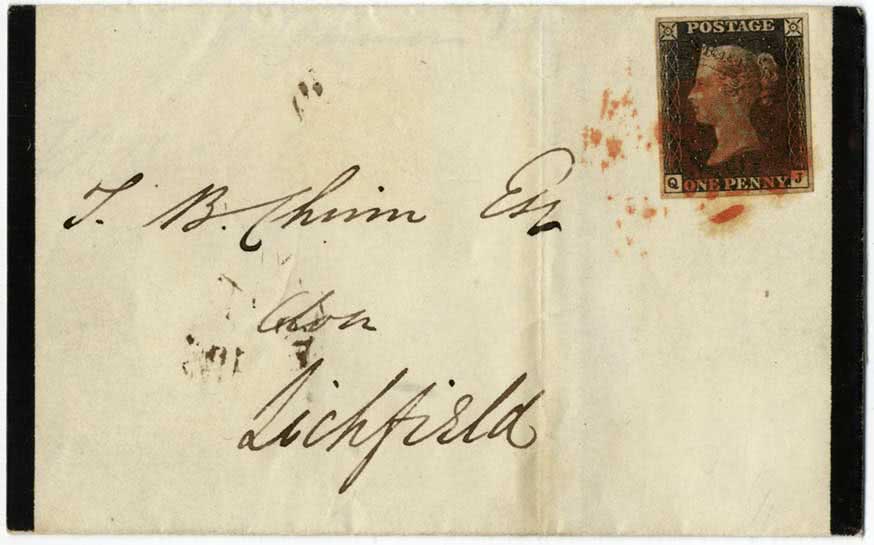 POSTAGE
Q ONE PENNY J
T. B. Chinn Esq
Lichfield